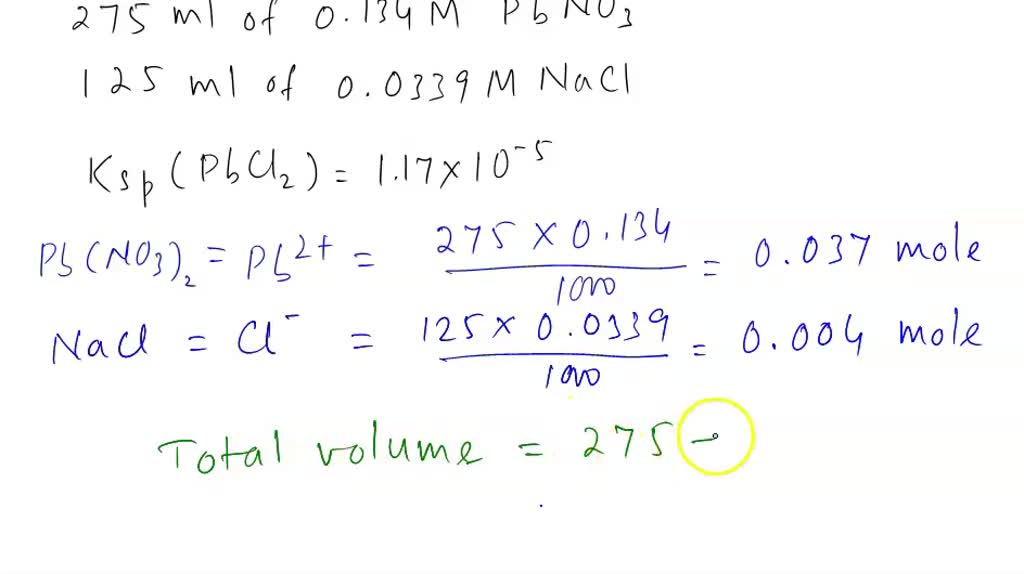 275 ml of 0.134 M PbNO3
125 ml of 0.0339 M NaCl
Ksp (PbCl2) = 1.17 x 10^-5
Pb(NO3)2 = Pb^2+ = 275 x 0.134 / 1000 = 0.037 mole
NaCl = Cl^- = 125 x 0.0339 / 1000 = 0.004 mole
Total volume = 275 -